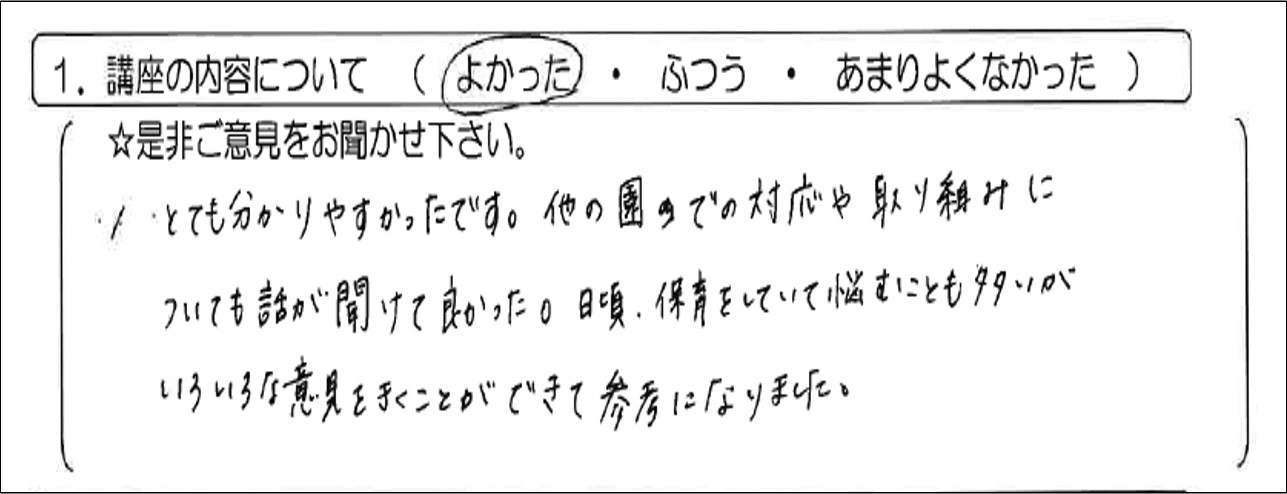 1．講座の内容について （ よかった ・ ふつう ・ あまりよくなかった ）
☆是非ご意見をお聞かせ下さい。
とても分かりやすかったです。他の園での対応や取り組みに
ついても話が聞けて良かった。日頃、保育をしていて悩むことも多いが
いろいろな意見をきくことができて参考になりました。